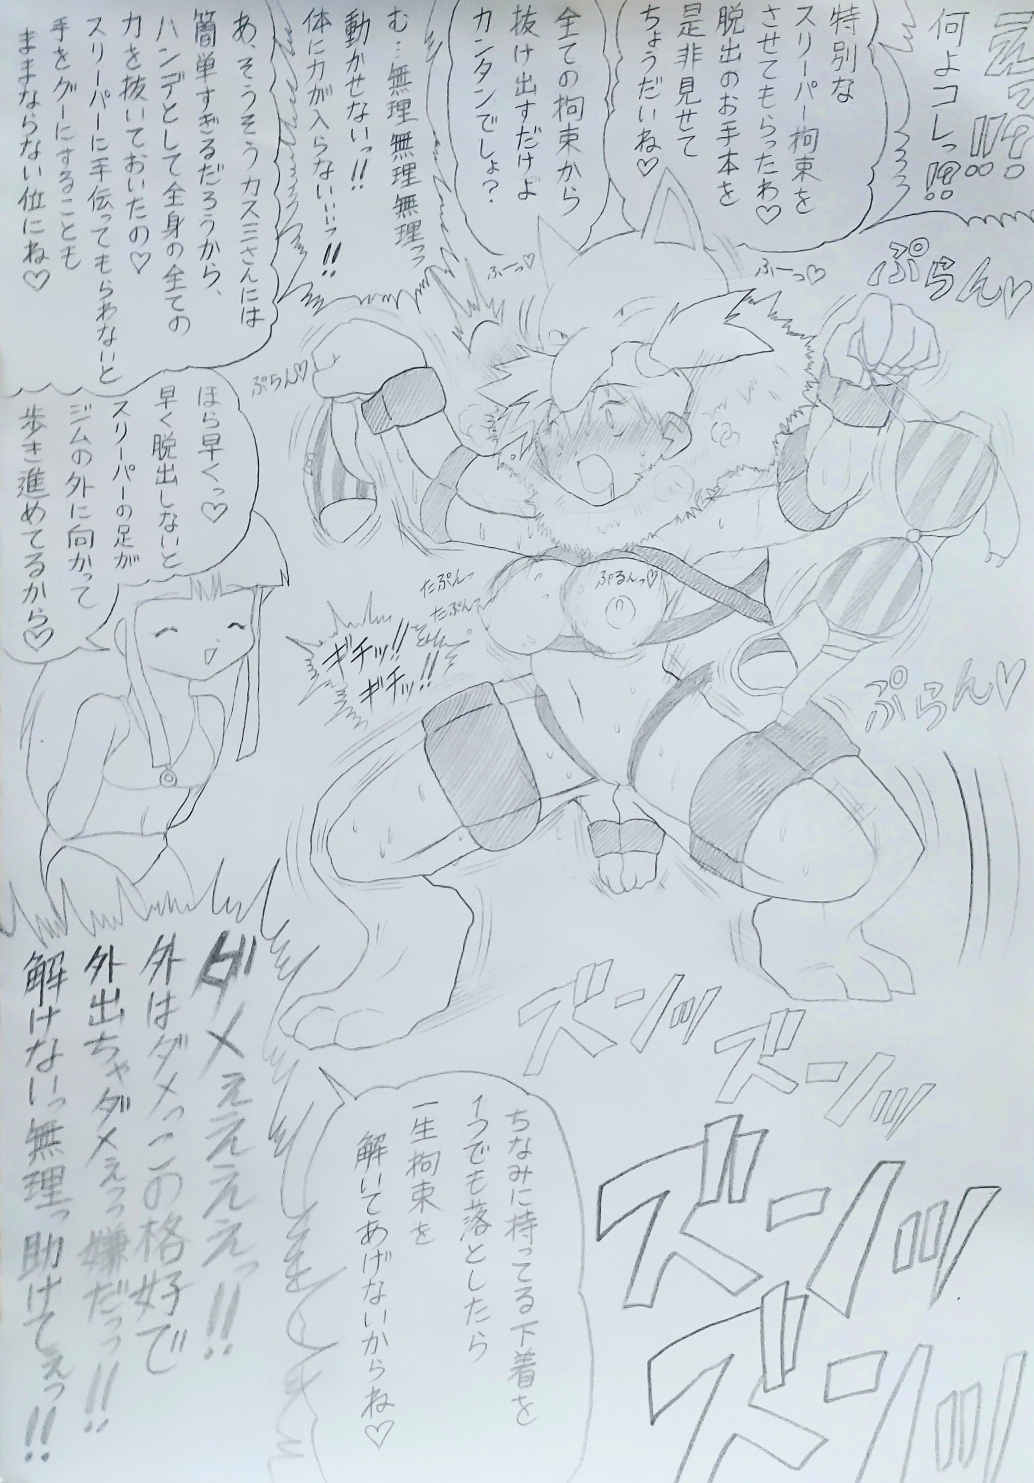 えっ!?!!
何よコレっ!?!!
特別な
スリーパー拘束を
させてもらったわ♡
脱出のお手本を
是非見せて
ちょうだいね♡
全ての拘束から
抜け出すだけよ
カンタンでしょ?
む…無理無理無理っ
動かせないっ!!
体に力が入らないぃぃっ!!
あ、そうそうカス三さんには
簡単すぎるだろうから、
ハンデとして全身の全ての
力を抜いておいたの♡
スリーパーに手伝ってもらわないと
手をグーにすることも
ままならない位にね♡
ふーっ♡
ふーっ♡
ぷらん♡
ぷらん♡
ほら早くっ♡
早く脱出しないと
スリーパーの足が
ジムの外に向かって
歩き進めてるから♡
たぷんっ
たぷんっ
ぷるんっ♡
ギチッ!!
ギチッ!!
ぷらん♡
ズーンッ
ズーンッ
ズーンッ
ズーンッ
ダメぇぇぇぇぇっ!!
外はダメっこの格好で
外出ちゃダメぇっっ嫌だっっ!!
解けないっ無理っ助けてぇっ!!
ちなみに持ってる下着を
1つでも落としたら
一生拘束を
解いてあげないからね♡